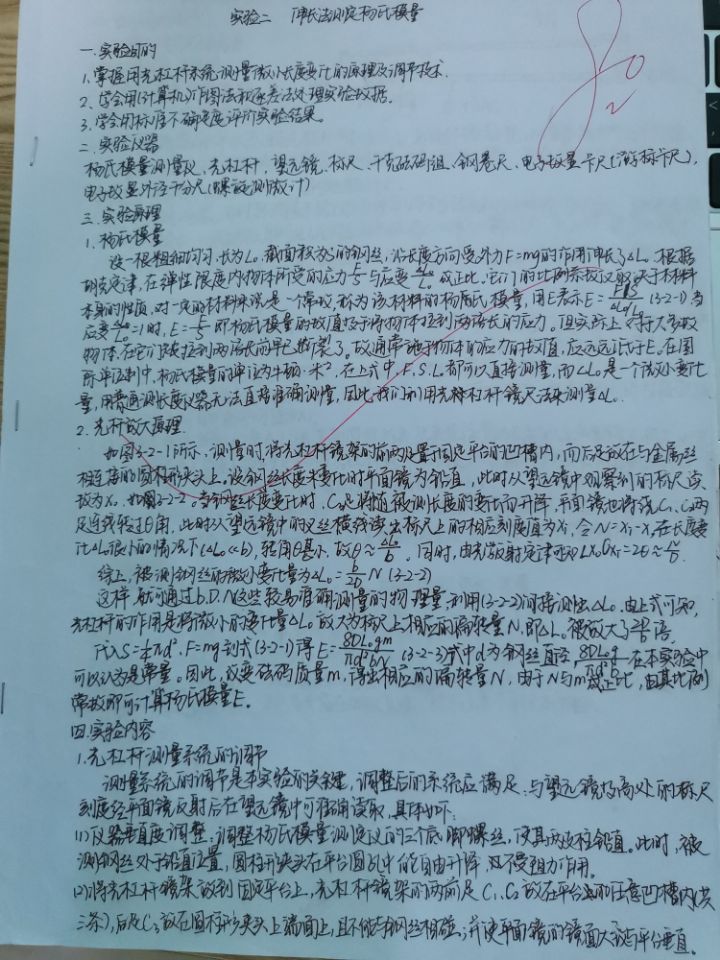 实验二 伸长法测定杨氏模量
一.实验目的
1.掌握用光杠杆系统测量微小长度变化的原理及调节技术.
2.学会用(计算机)作图法和逐差法处理实验数据.
3.学会用标准不确定度评价实验结果.
二.实验仪器
杨氏模量测量仪、光杠杆、望远镜、标尺、千克砝码组、钢卷尺、电子数显卡尺(游标卡尺)、
电子数显外径千分尺(螺旋测微计)
三.实验原理
1.杨氏模量
设一根粗细均匀、长为L₀、截面积为S的钢丝,沿长度方向受外力F=mg的作用伸长了ΔL₀.根据
胡克定律,在弹性限度内物体所受的应力F/S与应变ΔL₀/L₀成正比,它们的比例系数仅取决于材料
本身的性质.对一定的材料来说是一个常数,称为该材料的杨氏模量,用E表示E= (3-2-1)当
应变ΔL₀/L₀=1时,E=F/S即杨氏模量的数值等于将物体拉到两倍长的应力。但实际上对于大多数
物体,在它们没拉到两倍长前早已断裂了。故通常地物体的应力的数值,应远远低于E.在国
际单位制中,杨氏模量的单位为牛顿·米⁻².在上式中,F、S、L₀都可以直接测量,而ΔL₀是一个微小变化
量,用普通测长度仪器无法直接准确测量,因此我们利用光杠杆镜尺法来测量ΔL₀.
2.光杆放大原理.
如图3-2-1所示,测慢时,将光杠杆镜架的前两足置于固定平台的凹槽内,而后足放在与金属丝
相连的圆柱形夹头上,设钢丝长度未变化时平面镜为铅直,此时从望远镜中观察到的标尺点
数为X₀.如图3-2-2.当钢丝长度变化时,C₃足将随被测长度的变化而升降,平面镜也将绕C₁、C₂两
足连线转过θ角,此时从望远镜中的叉丝横线读出标尺上的相应刻度值为X₁,令N=X₁-X₀在长度变
化ΔL₀很小的情况下(ΔL₀≪b),转角θ甚小,故θ≈ΔL₀/b.同时,由光放射定律可知∠X₀OX₁=2θ≈N/D.
综上,被测钢丝的微小变化量为ΔL₀=b/2D N (3-2-2)
这样,就可通过b、D、N这些较易准确测量的物理量,利用(3-2-2)间接测出ΔL₀.由上式可知,
光杠杆的作用是将微小的变化量ΔL₀放大为标尺上相应的偏转量N,即ΔL₀被放大了 倍.
将S=¼πd²、F=mg到式(3-2-1)得E=8DL₀gm/πd²bN (3-2-3)式中d为钢丝直径,8DL₀g/πd²b在本实验中
可以认为是常量。因此,改变砝码质量m,得出相应的偏转量N,由于N与m成正比,由其比例
常数即可计算杨氏模量E.
四.实验内容
1.光杠杆测量系统的调节
测量系统的调节是本实验的关键,调整后的系统应满足:与望远镜等高处的标尺
刻度经平面镜反射后在望远镜中可准确读取,具体如下:
(1)仪器垂直度调整.调整杨氏模量测定仪的三个底脚螺丝,使其两立柱铅直。此时,被
测钢丝处于铅直位置,圆柱形夹头在平台圆孔中能自由升降,且不受阻力作用。
(2)将光杠杆镜架放到固定平台上,光杠杆镜架的两前足C₁、C₂放在平台面的任意凹槽内(共
三条),后足C₃放在圆柱形夹头上端面上,且不能与钢丝相碰;并使平面镜的镜面大致与平台垂直。